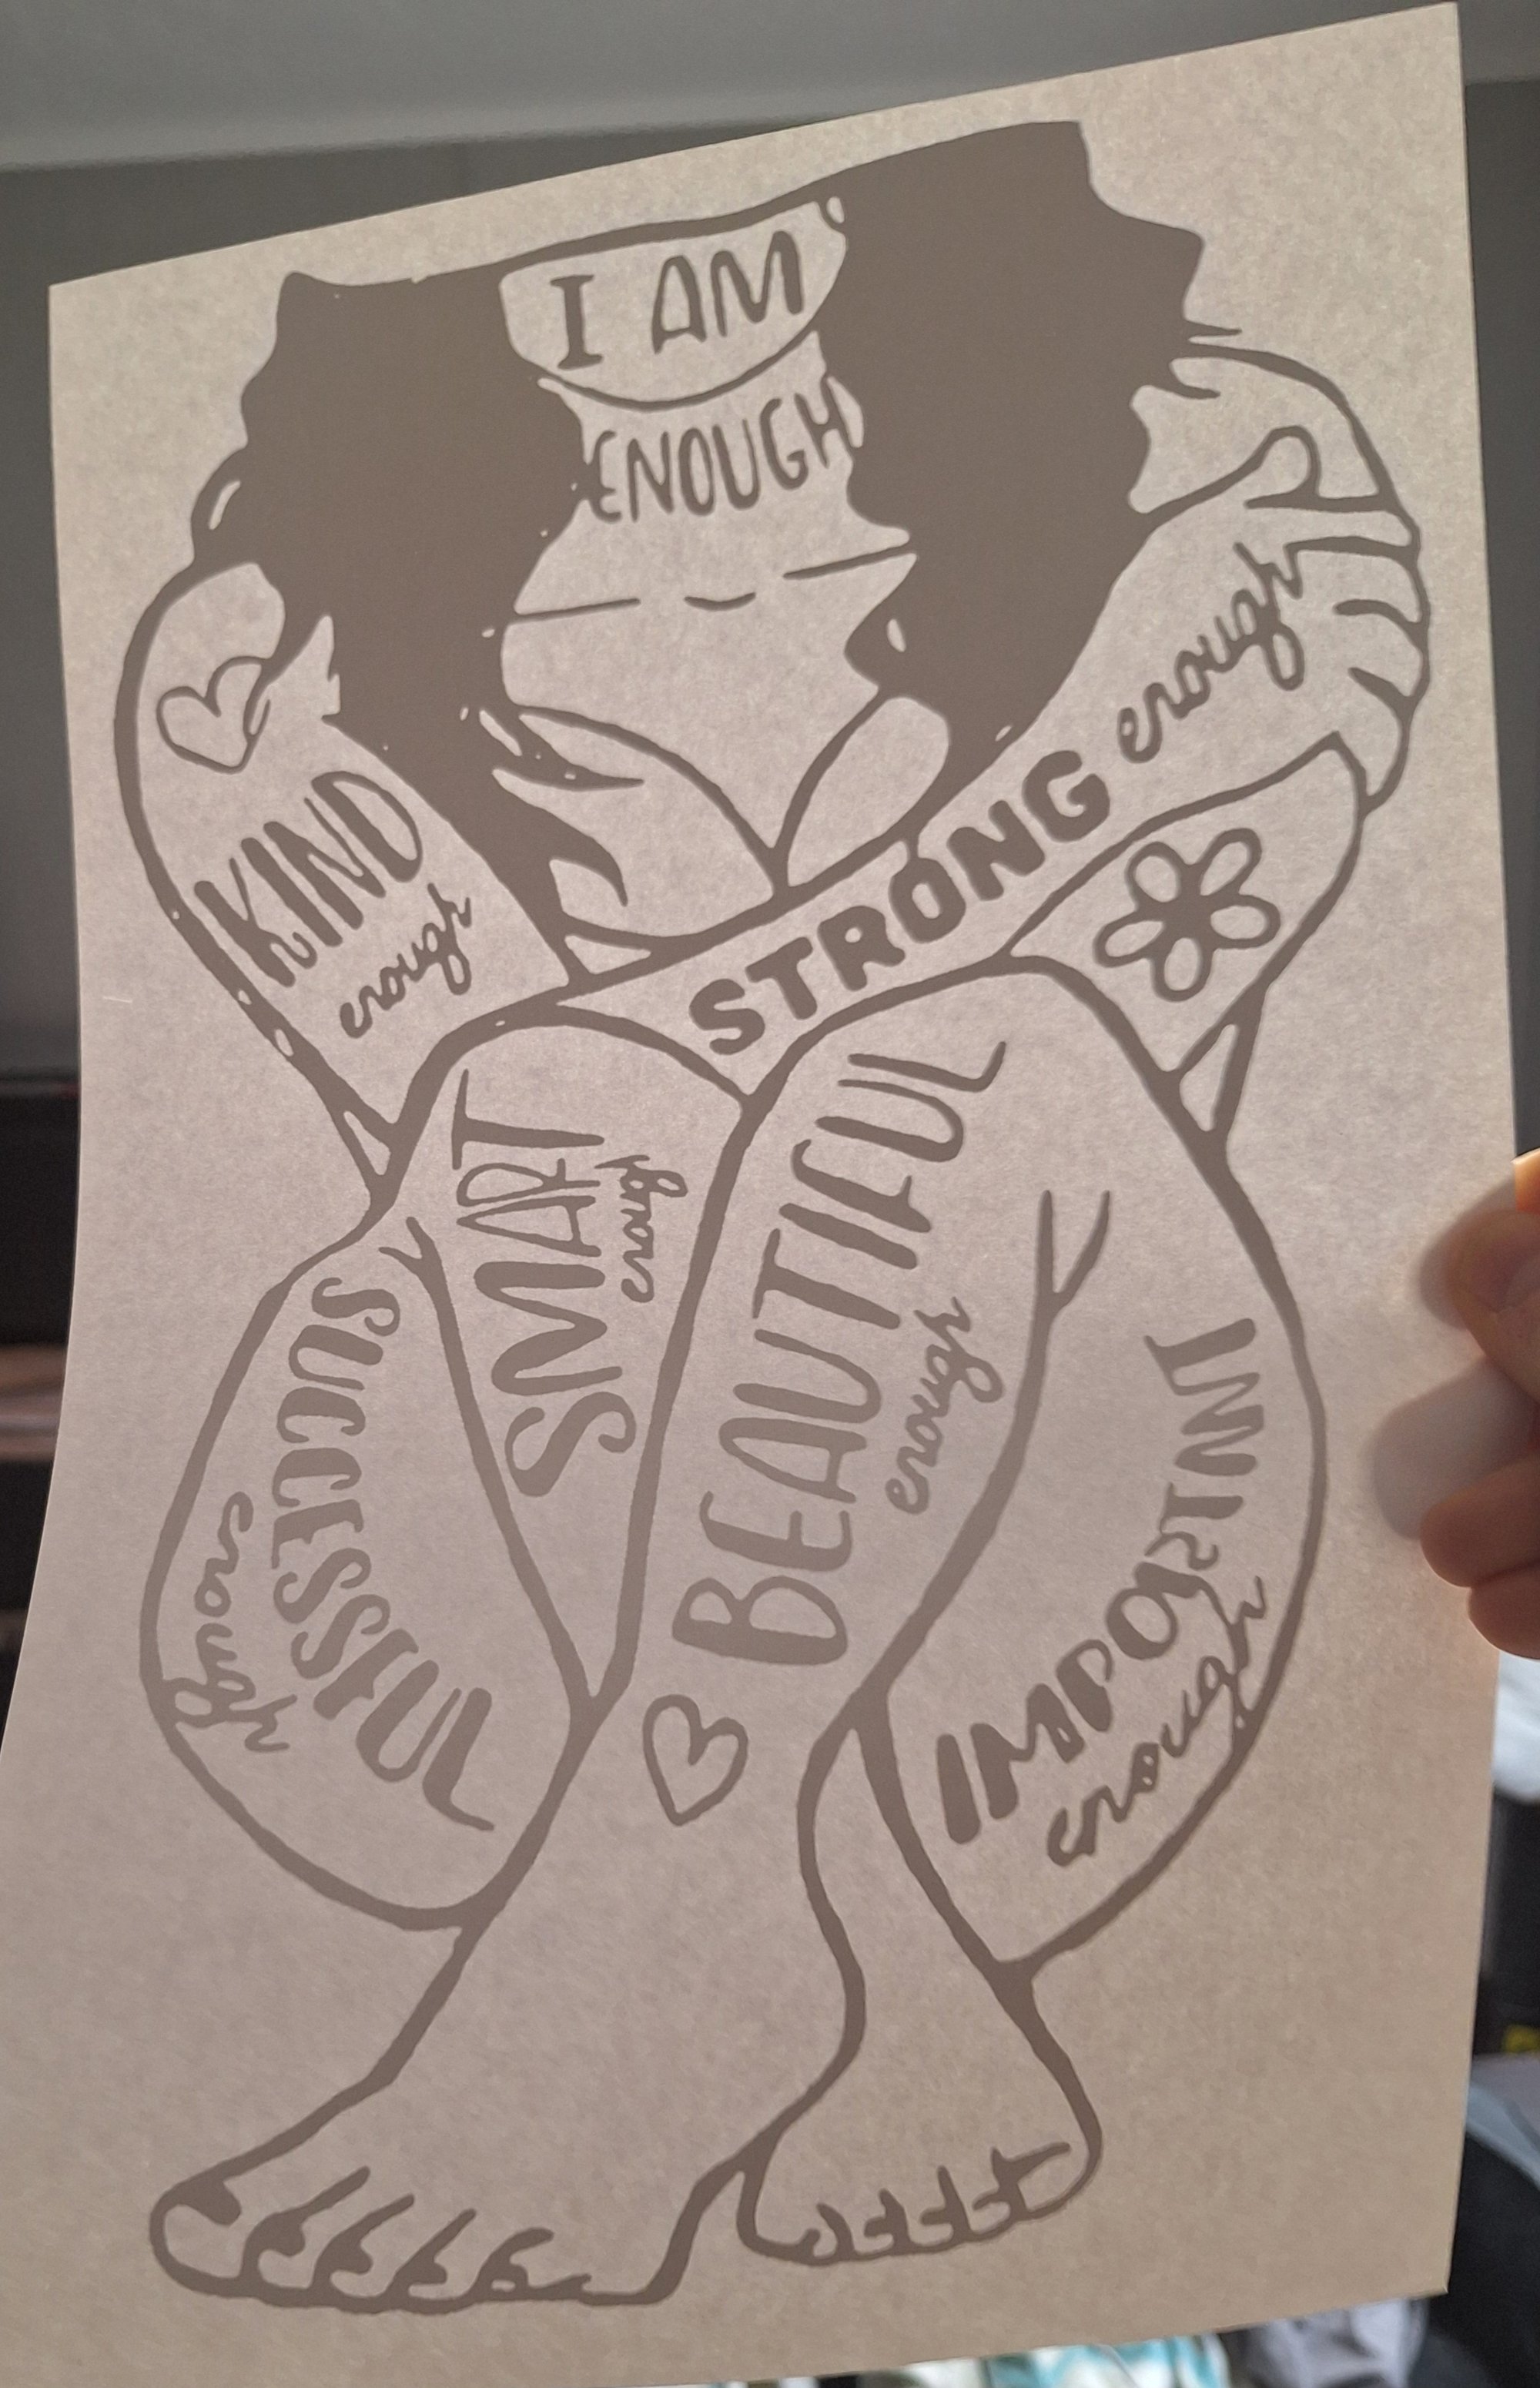 I AM
ENOUGH
KIND
enough
STRONG enough
SMART
enough
BEAUTIFUL
enough
SUCCESSFUL
enough
IMPORTANT
enough